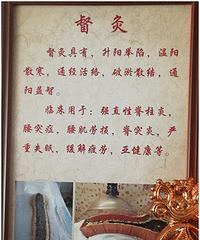 督灸
督灸具有，升阳举陷，温阳
散寒，通经活络，破淤散结，通
阳益智。
临床用于：强直性脊柱炎，
腰突症，腰肌劳损，脊突炎，严
重失眠，缓解疲劳，亚健康等。